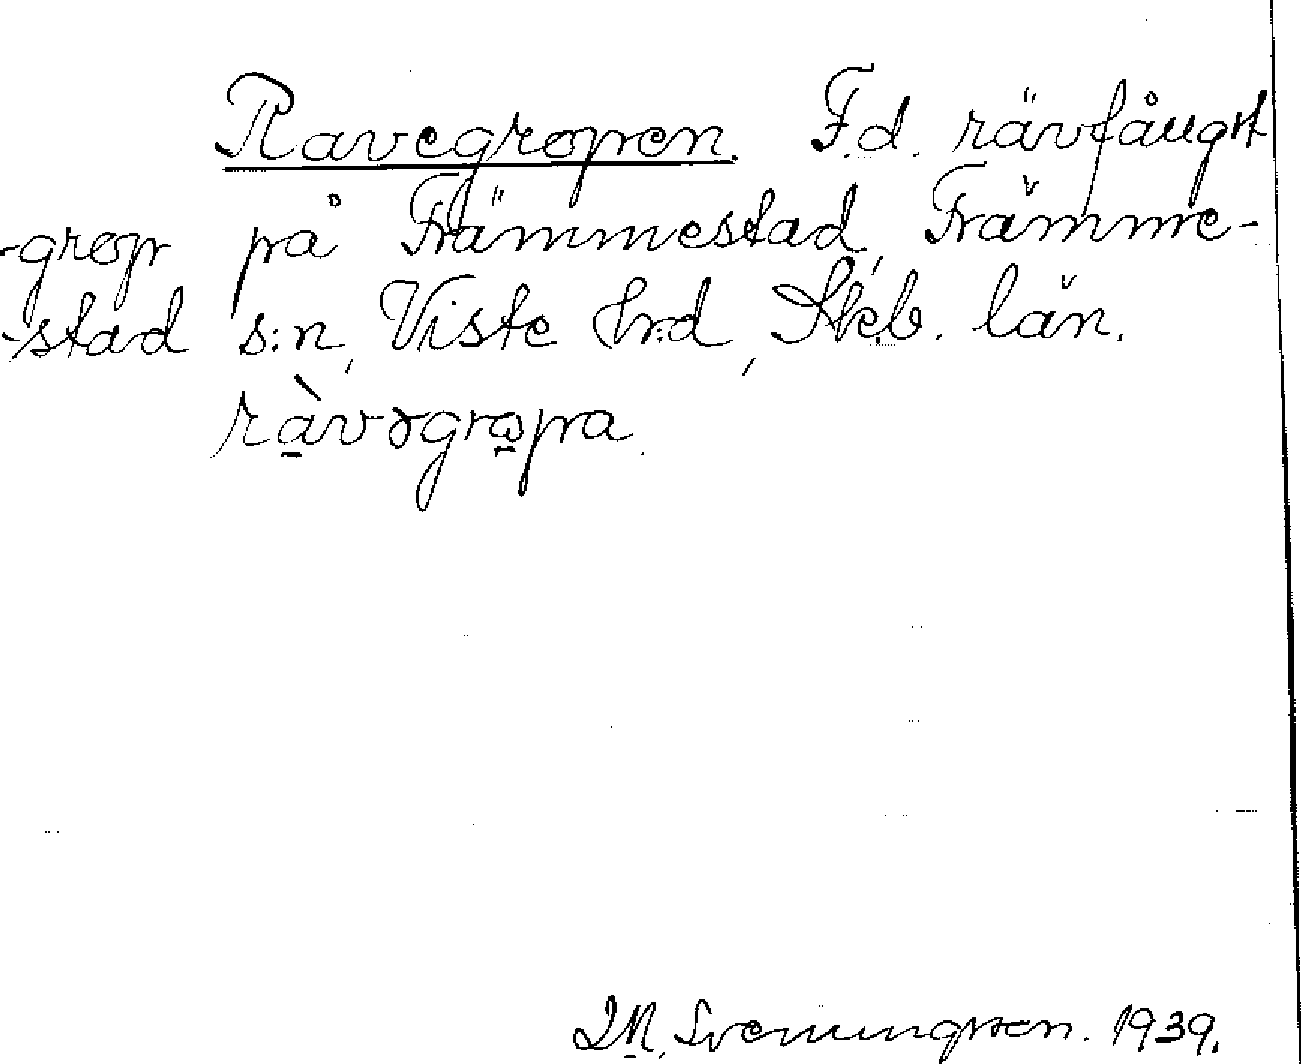 Ravegropen. F.d. rävfångst
-grop på Främmestad, Främme-
-stad s:n, Viste hrd, Skb. län.
ràvəgropa.
Svenningsson. 1939.